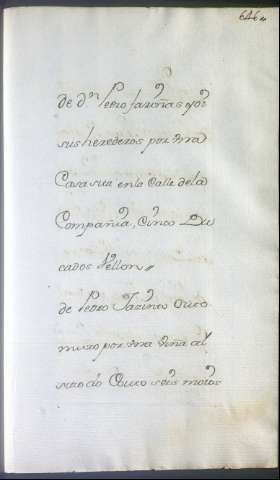 646
de Dn Pedro farinas y por
sus herederos por una
Casa sita en la Calle de la
Compañia, Cinco Du
cados Vellon
de Pedro Jazinto Ouro
muro por una viña al
sitio do Outo seis motos